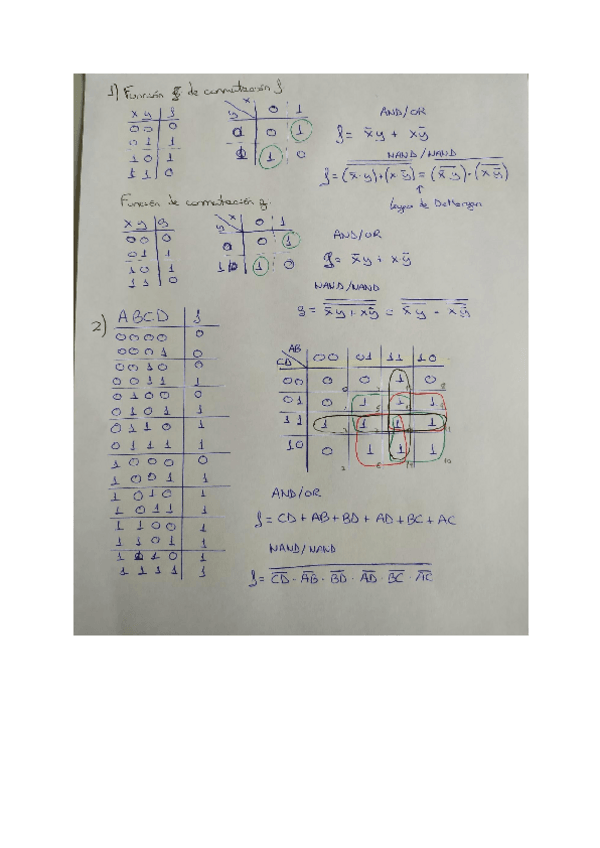 1) Función de conmutación f
x y f
0 0 0
0 1 1
1 0 1
1 1 0
x
y 0 1
0 0 1
1 0
AND/OR
f = x̄y + xȳ
NAND/NAND
f = (x̄·y)+(x·ȳ) = (x̄y)·(xȳ)
↑
Leyes de DeMorgan
Función de conmutación g.
x y g
0 0 0
0 1 1
1 0 1
1 1 0
x
y 0 1
0 0 1
1 1 0
AND/OR
g = x̄y + xȳ
NAND/NAND
g = x̄y + xȳ = x̄y · xȳ
2)
A B C D f
0 0 0 0 0
0 0 0 1 0
0 0 1 0 0
0 0 1 1 1
0 1 0 0 0
0 1 0 1 1
0 1 1 0 1
0 1 1 1 1
1 0 0 0 0
1 0 0 1 1
1 0 1 0 1
1 0 1 1 1
1 1 0 0 1
1 1 0 1 1
1 1 1 0 1
1 1 1 1 1
AB
CD 00 01 11 10
00 0 0 1 0
01 0 1 1 1
11 1 1 1 1
10 0 1 1 1
AND/OR
f = CD + AB + BD + AD + BC + AC
NAND/NAND
f = C̅D̅ · A̅B̅ · B̅D̅ · A̅D̅ · B̅C̅ · A̅C̅